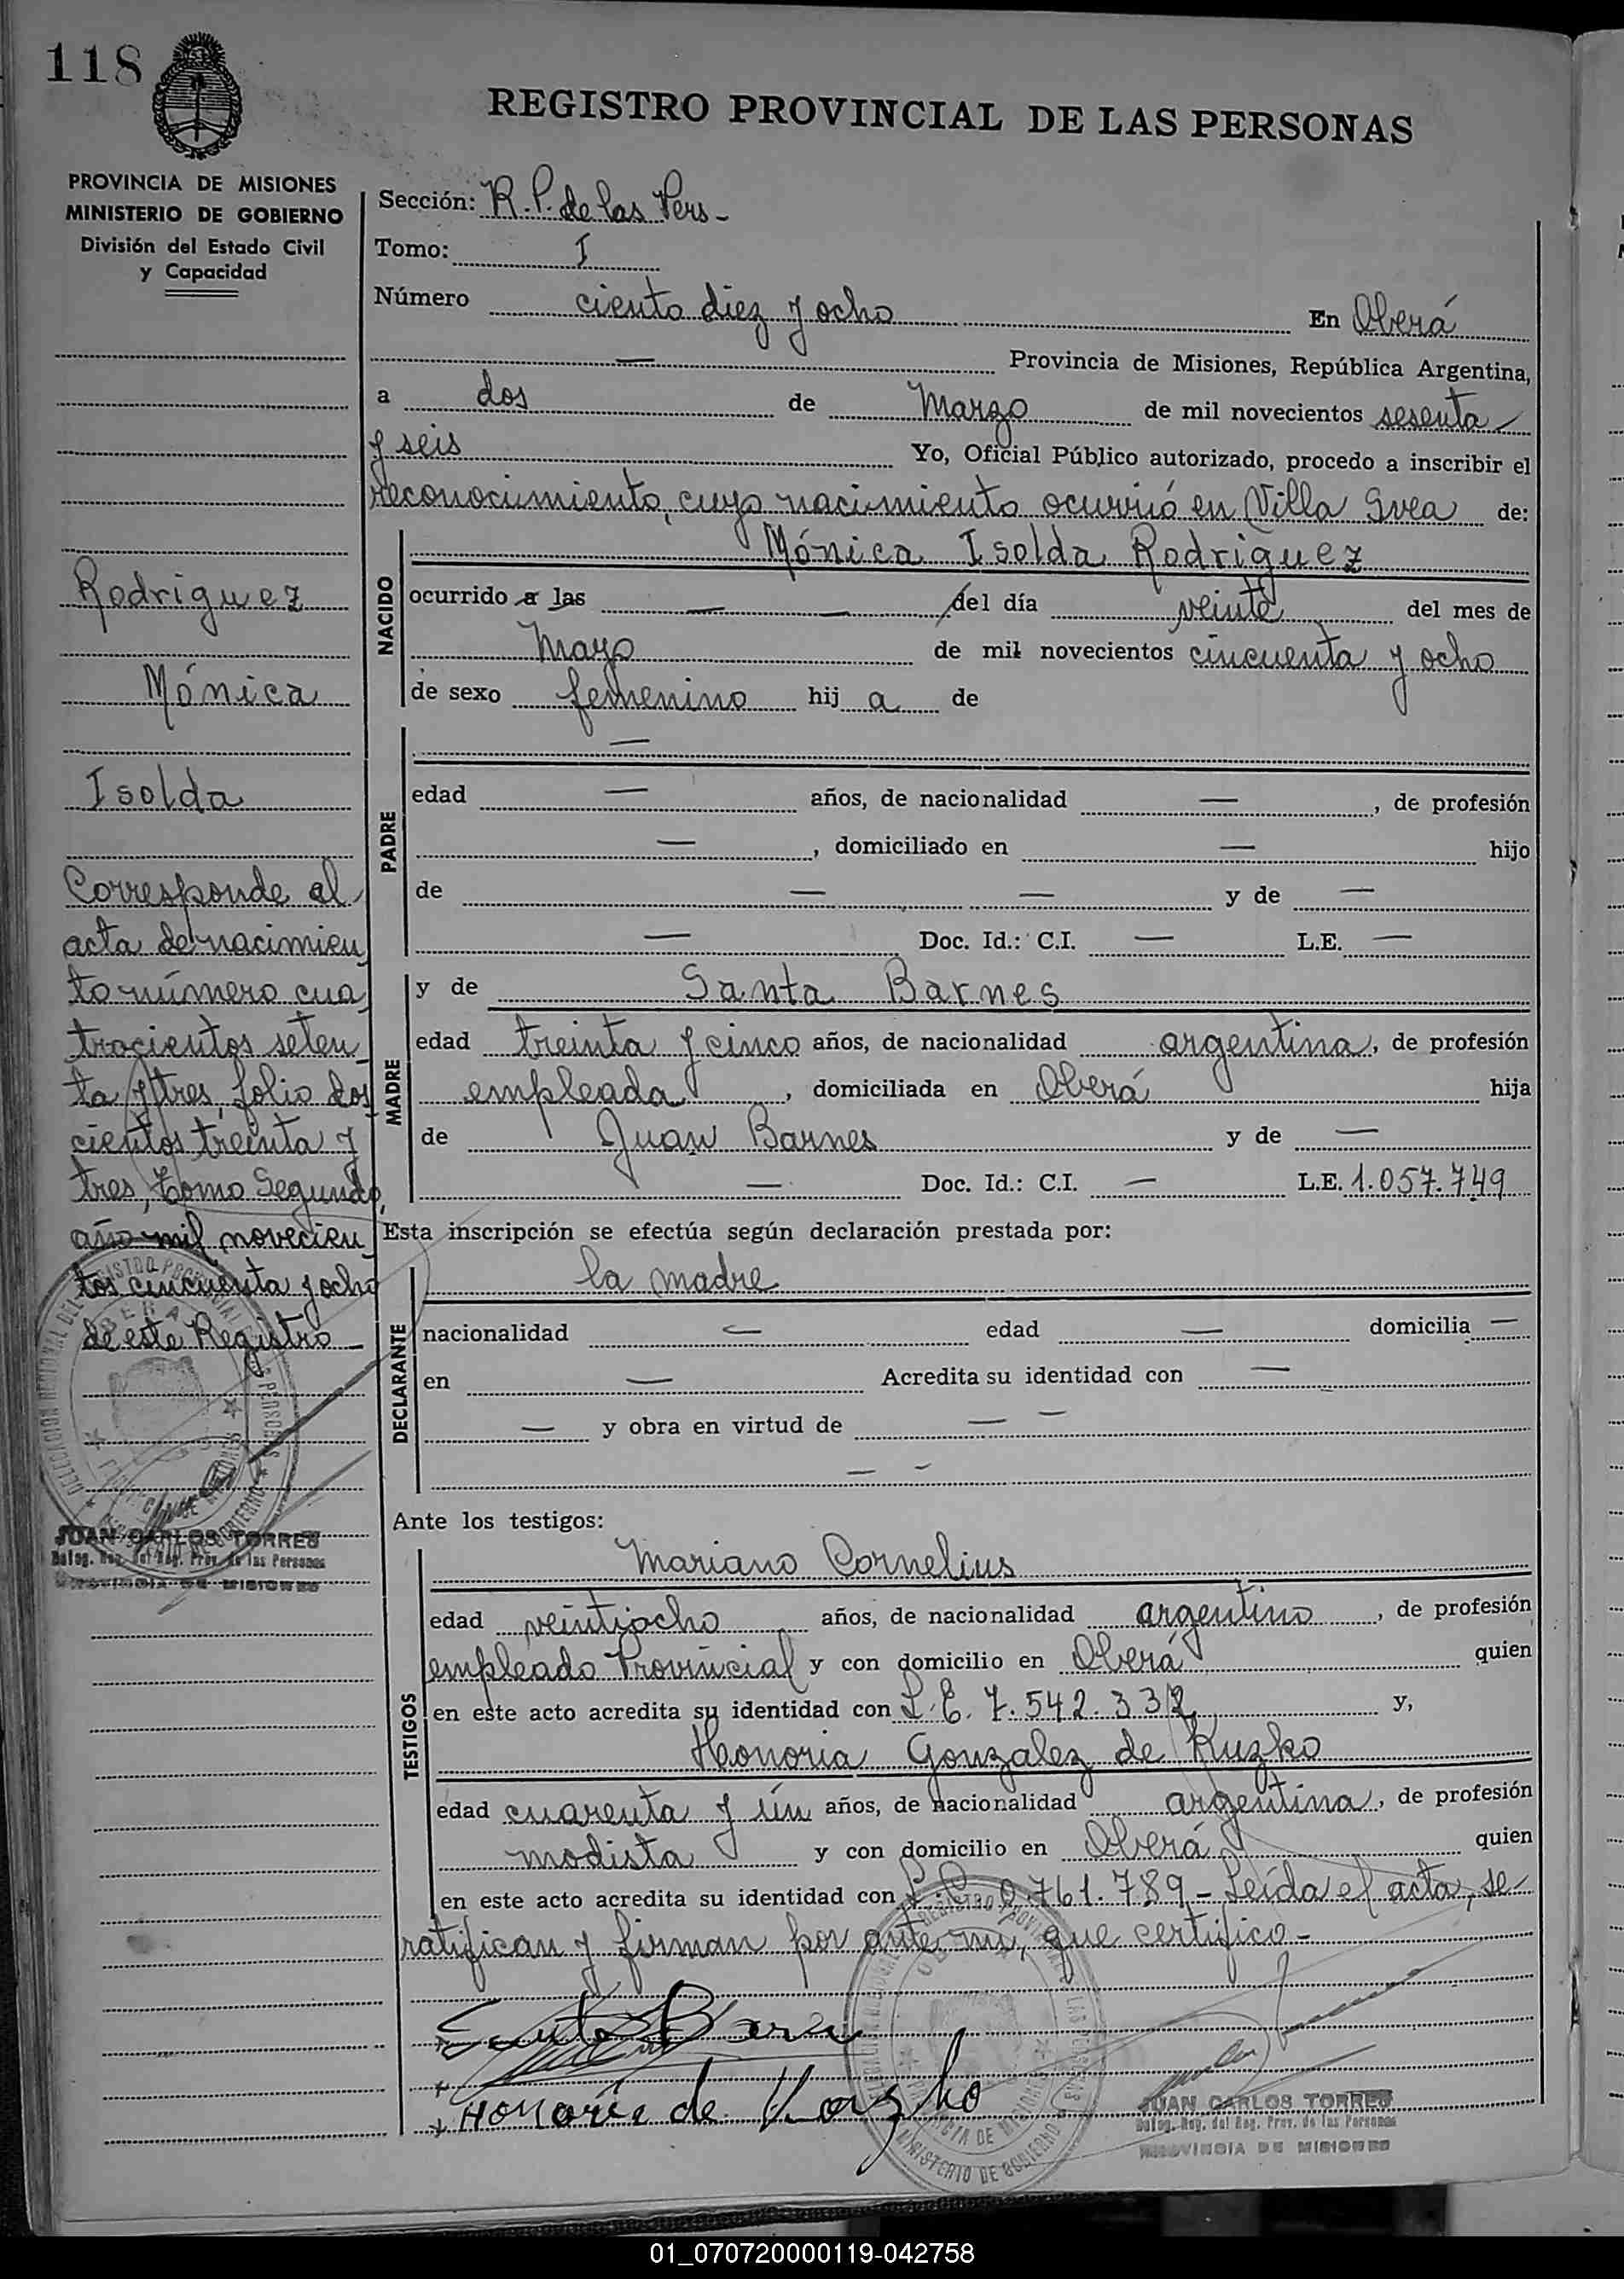 118
REGISTRO PROVINCIAL DE LAS PERSONAS
PROVINCIA DE MISIONES
MINISTERIO DE GOBIERNO
División del Estado Civil
y Capacidad
Sección: R.P. de las Pers -
Tomo: I
Número ciento diez y ocho En Oberá
— Provincia de Misiones, República Argentina,
a dos de Marzo de mil novecientos sesenta
y seis Yo, Oficial Público autorizado, procedo a inscribir el
reconocimiento, cuyo nacimiento ocurrió en Villa Svea de:
NACIDO
Mónica Isolda Rodriguez
ocurrido a las — — del día veinte del mes de
Mayo de mil novecientos cincuenta y ocho
de sexo femenino hij a de
PADRE
—
edad — años, de nacionalidad —, de profesión
—, domiciliado en — hijo
de — — y de —
— Doc. Id.: C.I. — L.E. —
MADRE
y de Santa Barnes
edad treinta y cinco años, de nacionalidad argentina, de profesión
empleada, domiciliada en Oberá hija
de Juan Barnes y de —
— Doc. Id.: C.I. — L.E. 1.057.749
Esta inscripción se efectúa según declaración prestada por:
DECLARANTE
la madre
nacionalidad — edad — domicilia —
en — Acredita su identidad con —
— y obra en virtud de — —
— -
Ante los testigos:
TESTIGOS
Mariano Cornelius
edad veintiocho años, de nacionalidad argentino, de profesión
empleado Provincial y con domicilio en Oberá quien
en este acto acredita su identidad con L.E. 7.542.332 y,
Honoria Gonzalez de Kuzko
edad cuarenta y un años, de nacionalidad argentina, de profesión
modista y con domicilio en Oberá quien
en este acto acredita su identidad con L.C. 0.761.789 - Leída el acta, se
ratifican y firman por ante mi, que certifico -
Santa Barn
Honoria de Kuzko
JUAN CARLOS TORRES
Deleg. Reg. del Reg. Prov. de las Personas
PROVINCIA DE MISIONES
Rodriguez
Mónica
Isolda
Corresponde al
acta de nacimien
to número cua
trocientos seten
ta y tres, folio dos
cientos treinta y
tres, Tomo Segundo,
año mil novecien
tos cincuenta y ocho
de este Registro -
JUAN CARLOS TORRES
Deleg. Reg. del Reg. Prov. de las Personas
PROVINCIA DE MISIONES
01_070720000119-042758